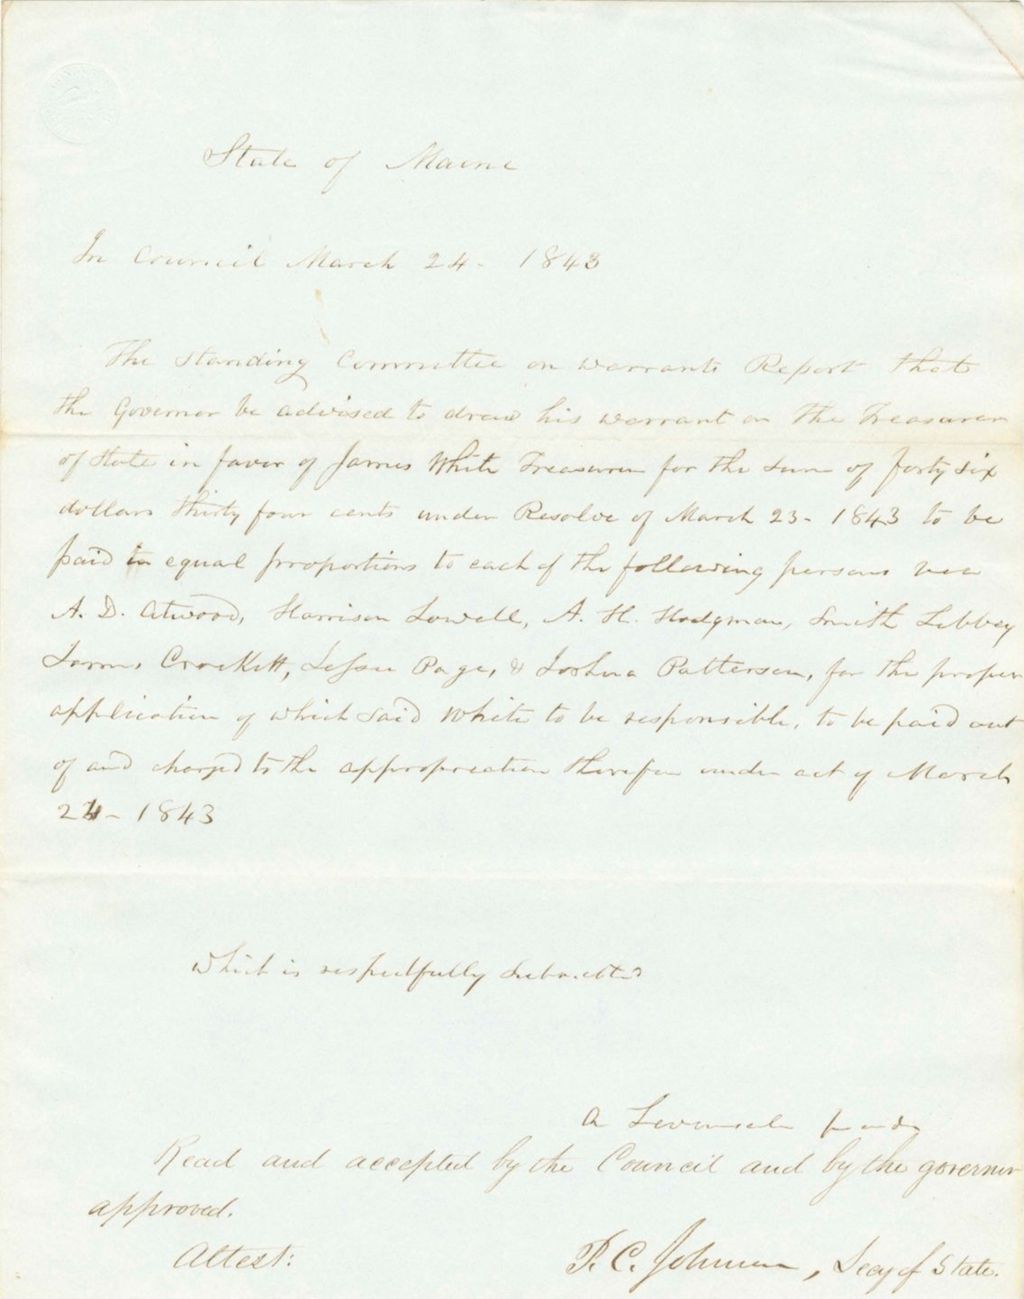 State of Maine
In Council March 24 - 1843
The Standing Committee on Warrants Report that
the Governor be advised to draw his warrant on the Treasurer
of State in favor of James White Treasurer for the sum of forty six
dollars thirty four cents under Resolve of March 23 - 1843 to be
paid in equal proportions to each of the following persons viz
A. D. Atwood, Harrison Lowell, A. H. Hodgman, Smith Libbey
James Crockett, Jesse Page, & Joshua Patterson, for the proper
application of which said White to be responsible, to be paid out
of and charged to the appropriation therefor under act of March
24 - 1843
Which is respectfully submitted
A
Read and accepted by the Council and by the governor
approved.
Attest: P. C. Johnson, Secy of State.